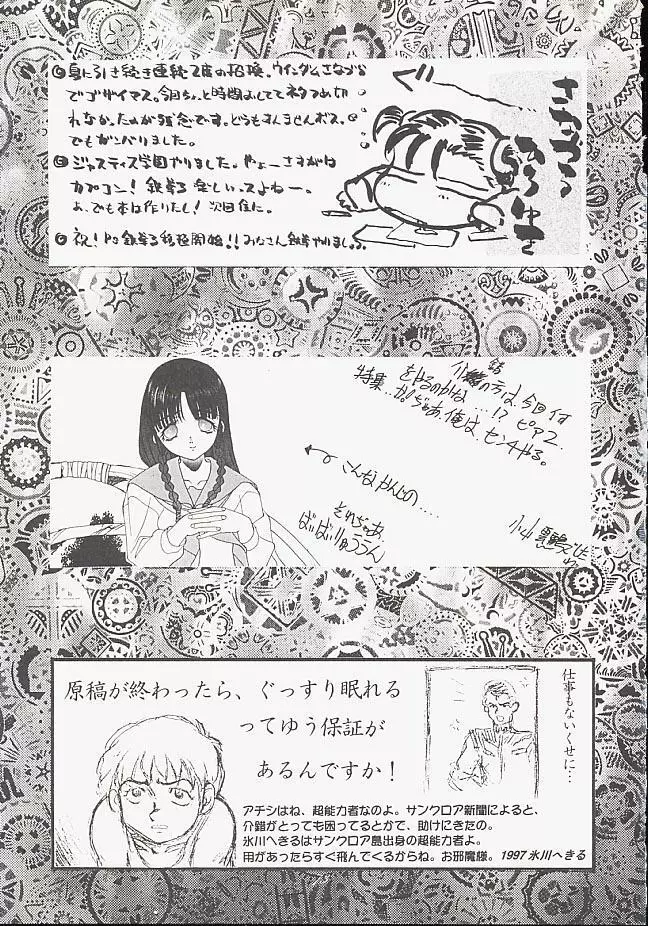 身に引き続き連続2度の招喚、ウィンダムさながら
でゴザイマス。今回ちょっと時間おしてて ネタつめ切
れなかったのが残念です。どうもすんませんボス。
でもガンバリました。
ジャスティス学園やりました。やぁーさすがは
カプコン! 鉄拳3 楽しいっスよねー。
あ、でも本は作りたし! 次回佳に。
祝!PS 鉄拳3移植開始!!みなさん鉄拳やりましょ
の方は、今回何
をやるのかな…!? ピアス
特集…か。ぢゃあ、俺は、センチやる。
こんなかんじの……
それぢゃあ、
原稿が終わったら、ぐっすり眠れる
ってゆう保証が
あるんですか!
仕事もないくせに…
アチシはね、超能力者なのよ。サンクロア新聞によると、
介錯がとっても困ってるとかで、助けにきたの。
氷川へきるはサンクロア島出身の超能力者よ。
用があったらすぐ飛んでくるからね。お邪魔様。1997 氷川へきる